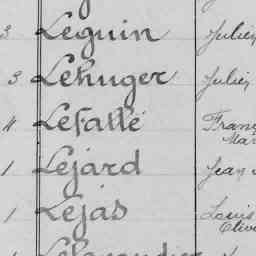 3 Leguin Julien
3 Lehuger Julien
4 Lefallé Fran
Mar
1 Lejard Jean
1 Lejas Louis